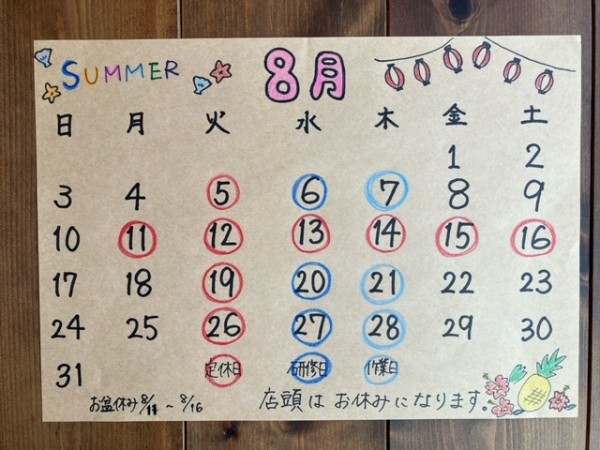 SUMMER 8月
日 月 火 水 木 金 土
1 2
3 4 5 6 7 8 9
10 11 12 13 14 15 16
17 18 19 20 21 22 23
24 25 26 27 28 29 30
31 定休日 研修日 作業日
お盆休み 8/11 ~ 8/16 店頭は お休みになります。